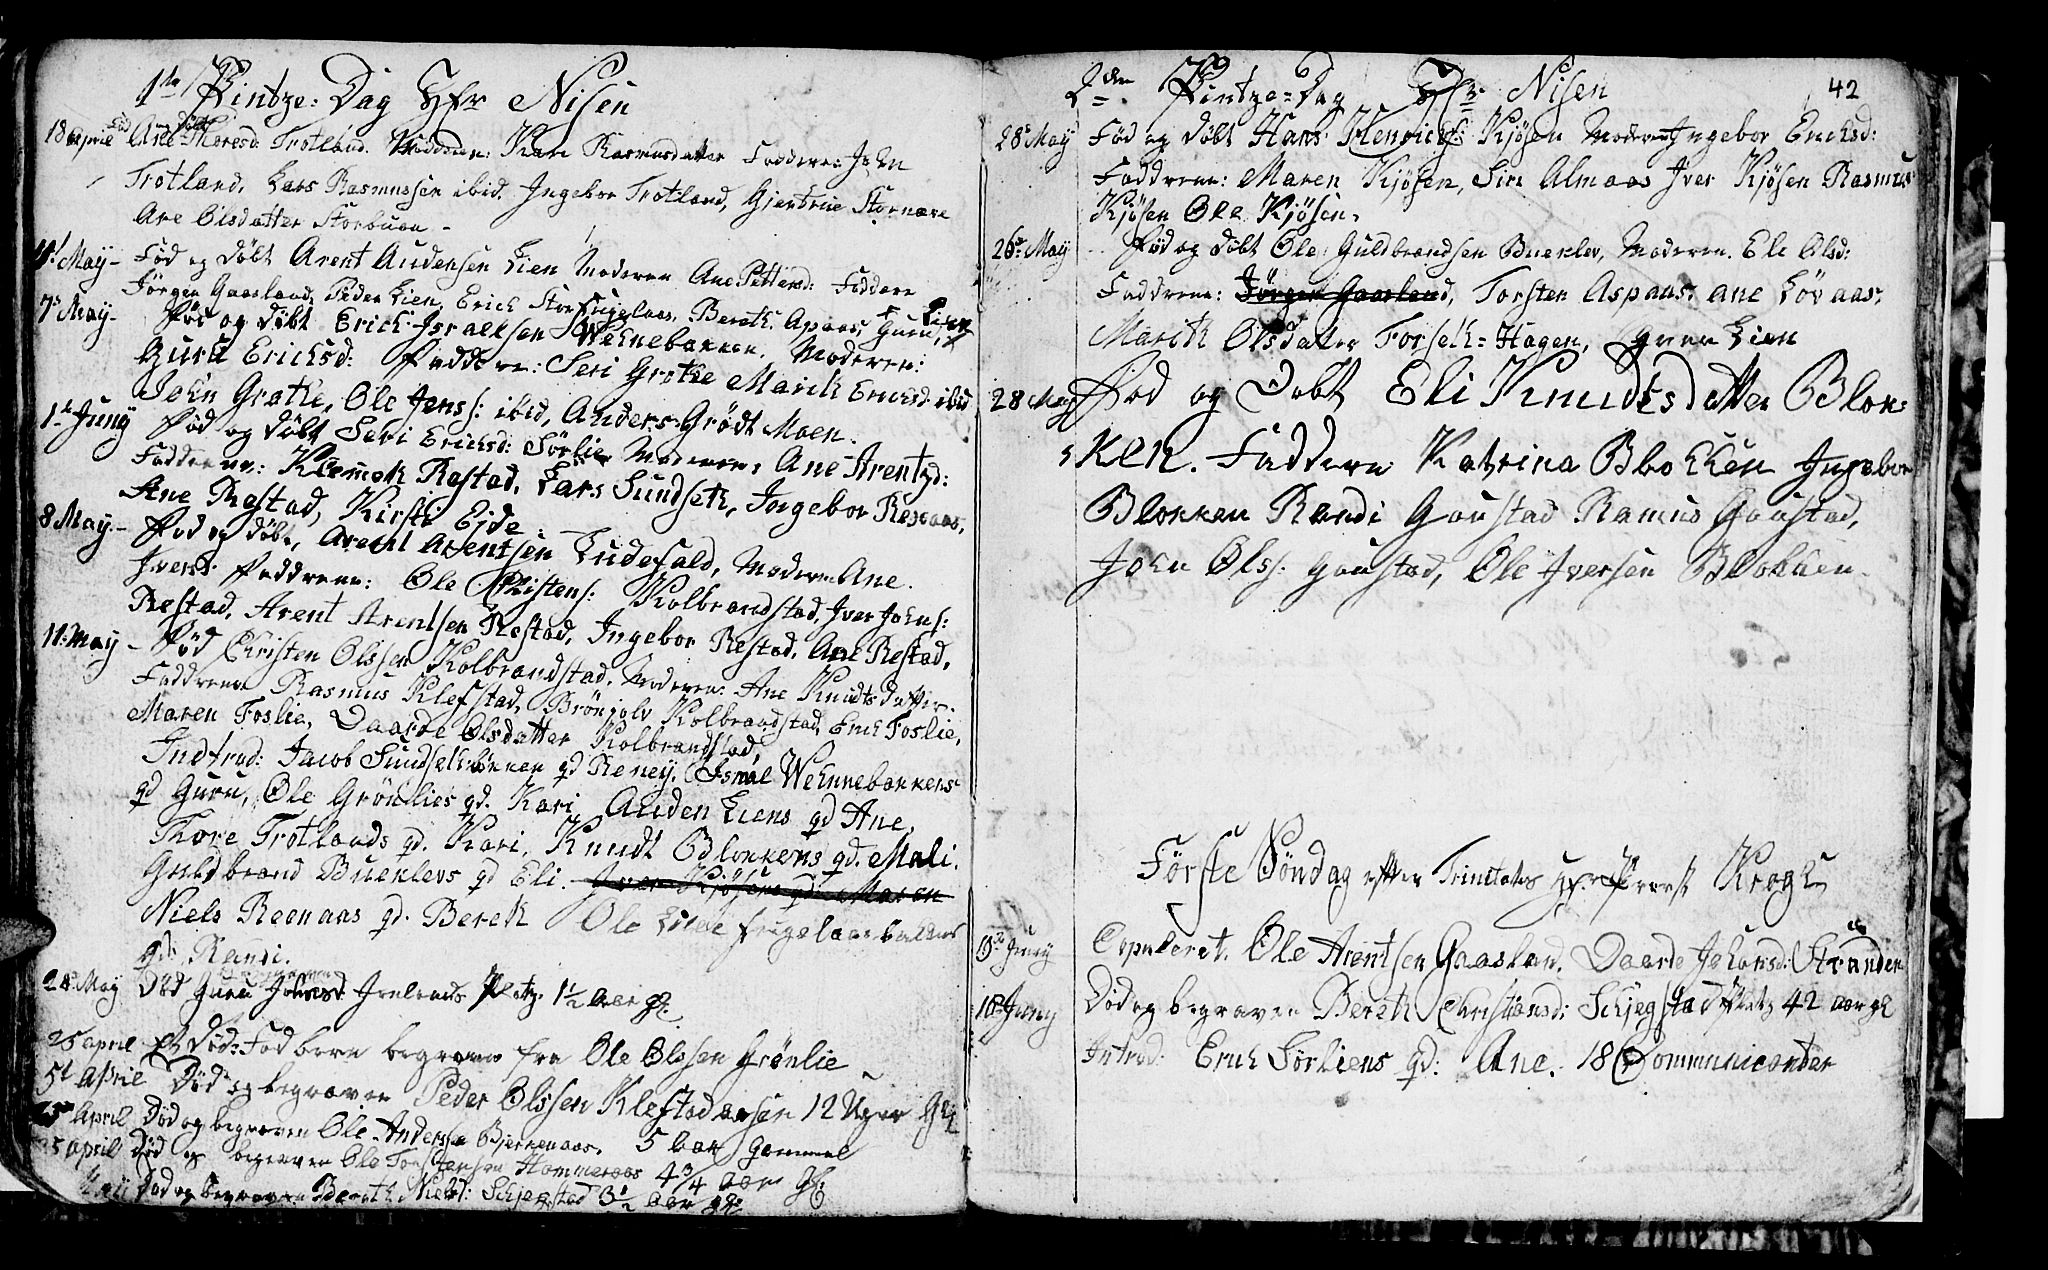 1te Pintze-Dag Hr Nisen
18 April Fød og døbt Ane Thoresd. Trotland. Moderen: Kari Rasmusdatter Faddere: John
Trotland, Lars Rasmussen ibid. Ingebor Trotland, Giertrue Stornære
Ane Olsdatter Storbuen -
May - Fød og døbt Arent Audensen Lien Moderen Ane Pettersd: Faddere
Jørgen Gaasland, Peder Lien, Erich Storfuglaas, Bereth Apaas, Guru Lien
7 May - Fød og døbt Erich Israelsen Wehnebakken. Moderen:
Guru Erichsd: Faddere: Seri Grøtte Marith Erichsd: ibid
John Grøtte, Ole Jenss: ibid, Anders Grødt Moen.
1te Juny Fød og døbt Seri Erichsd: Sørlie Moderen: Ane Arentzd:
Fadderne: Klemeth Røstad, Lars Sundseth, Ingebor Reenaas,
Ane Røstad, Kirsti Eide.
8 May. - Fød og døbt, Arent Arentsen Ludefald, Moderen Ane
Ivers: Faddrene: Ole Christens: Kolbrandstad, Iver Johns:
Restad, Arent Arentsen Restad, Ingebor Restad, Ane Restad,
11. May - Fød Christen Olssen Kolbrandstad. Moderen: Ane Knudtsdatter.
Faddrene Rasmus Klefstad, Brønjolv Kolbrandstad, Erich Foslie,
Maren Foslie, Daarde Olsdatter Kolbrandstad
Indtrod: Jacob Sundsethbønnen qd Reney, Ismal Wehnnebakkens
qd Guru, Ole Grønlies qd. Kari, Auden Liens qd Ane,
Thore Trotlands qd. Kari, Knudt Blokkens qd. Mali.
Guldbrand Buenlevs qd Eli. Iver Kjøsens qd: Maren
Niels Reenaas qd. Bereth Ole Lille fugelaas bakkens
qd: Randi.
24 May Død Guru Johnsd: Irelands Platz. 1 1/2 Aar gl:
25 april Et Død-Fød barn begraven fra Ole Olssen Grønlie
5t April Død og begraven Peder Olssen Klefstad 12 Uger Gl
April Død og begraven Ole Anderssen Bjerkenaas. 5 Aar gammel
25 april Død og begraven Ole Torstensen Hammeraas 4 3/4 aar gl:
May Død og begraven Bereth Nielsd: Schjegstad 3 1/2 aar gl:
42
2den Pintze-Dag Hr: Nisen
28 May Fød og døbt Hans Henrichs: Kjøsen Moderen Ingebor Erichsd:
Faddrene: Maren Kjøsen, Siri Almaas Iver Kjøsen Rasmus
Kjøsen Ole Kjøsen.
26 May Fød og døbt Ole Guldbrandsen Buenlev, Moderen. Eli Olsd:
Faddrene: Jørgen Gaasland, Torsten Aspaas, ane Løvaas,
Marith Olsdatter Forseth-Hagen, Lien
28 May Fød og Døbt Eli Knudtsdatter Blok-
ken. Faddere Katrina Blokken Ingebor
Blokken Randi Gaustad Ramus Gaustad,
John Olss: Gaustad, Ole Iversen Blokken
Første Søndag efter Trinitatis Hr. Provst Krogh
19 Juny Copuleret. Ole Arentsen Gaasland. Daarde Johansd: Stranden
10 Juny Død og begraven Bereth Christiansd: Schjegstad Platz 42 aar gl
Introd: Erich Sørliens qd: Ane. 18 Communicanter